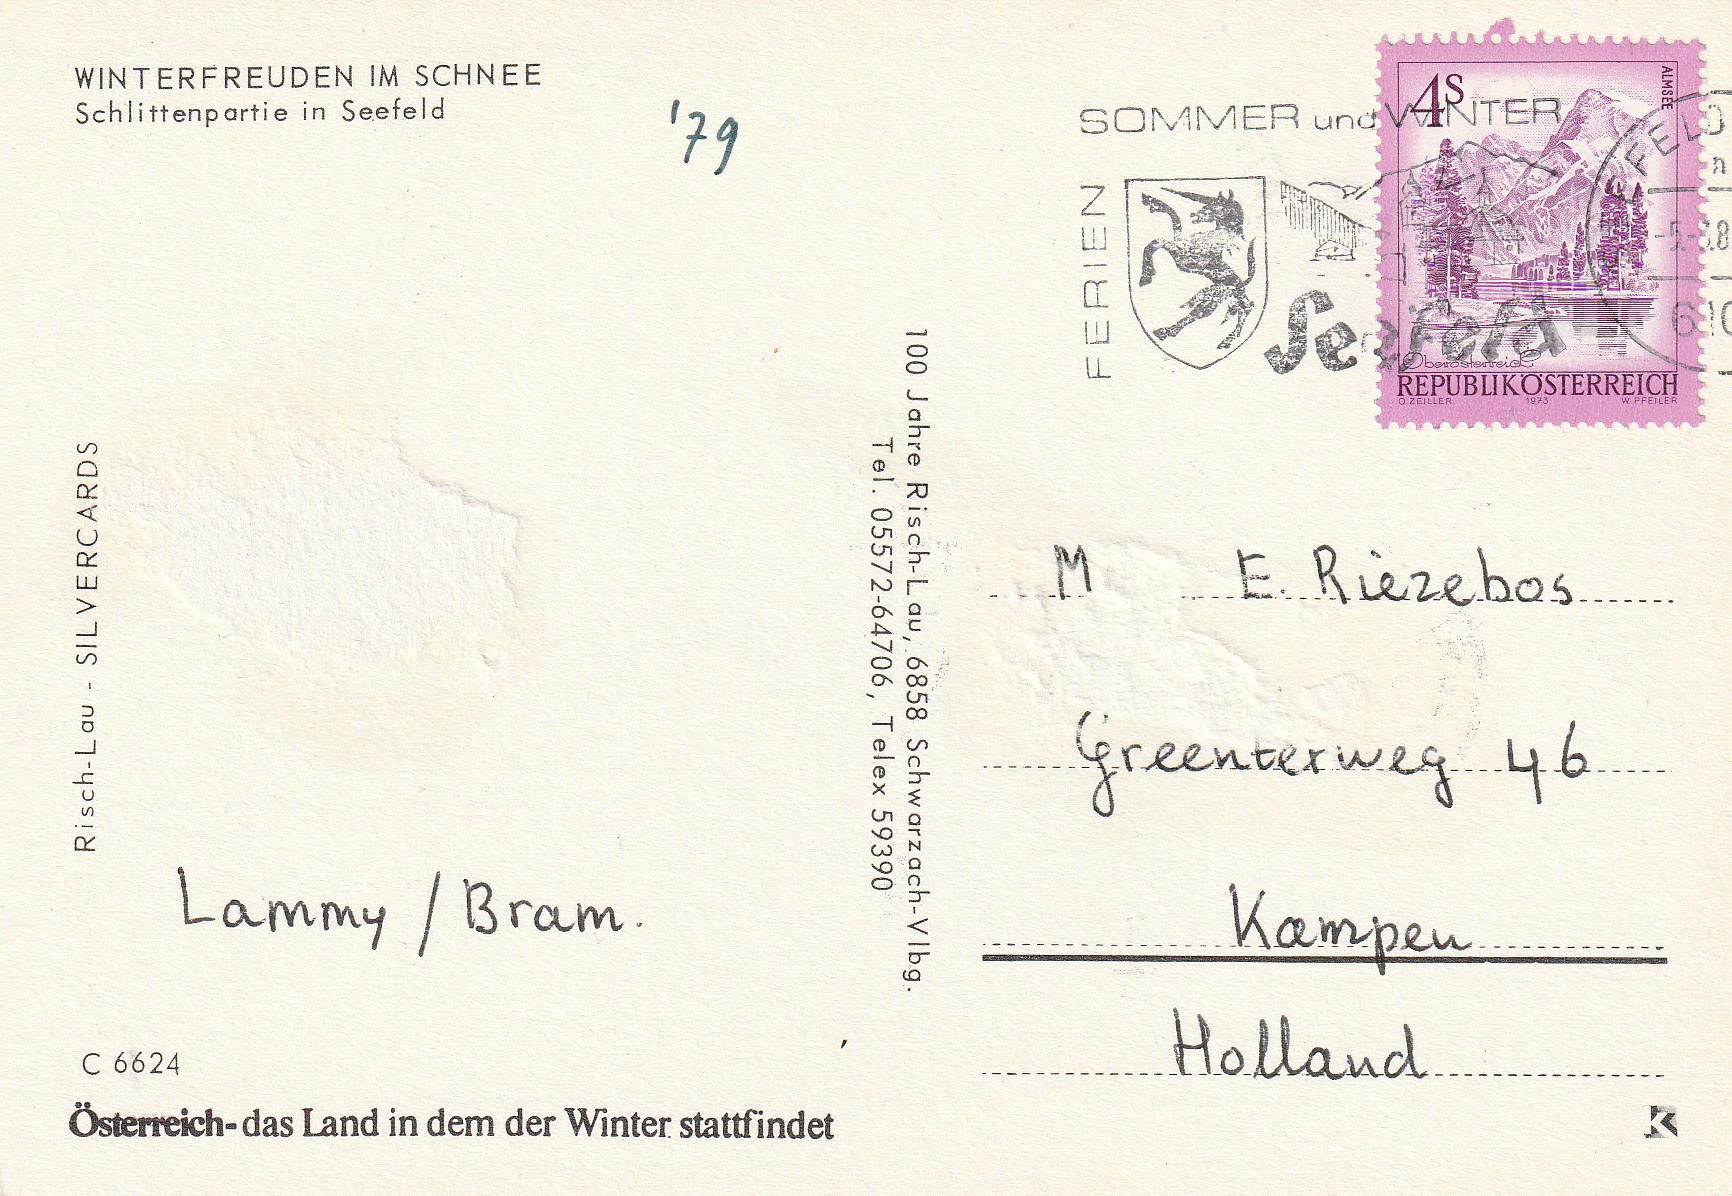 WINTERFREUDEN IM SCHNEE
Schlittenpartie in Seefeld
'79
Risch-Lau - SILVERCARDS
Lammy / Bram.
C 6624
Österreich- das Land in dem der Winter stattfindet
100 Jahre Risch-Lau, 6858 Schwarzach-Vlbg.
Tel. 05572-64706, Telex 59390
SOMMER und WINTER
FERIEN
Seefeld
4S
ALMSEE
Oberösterreich
REPUBLIK ÖSTERREICH
O. ZEILLER 1973 W. PFEILER
EFELD
610
M E. Riezebos
Greenterweg 46
Kampen
Holland
K